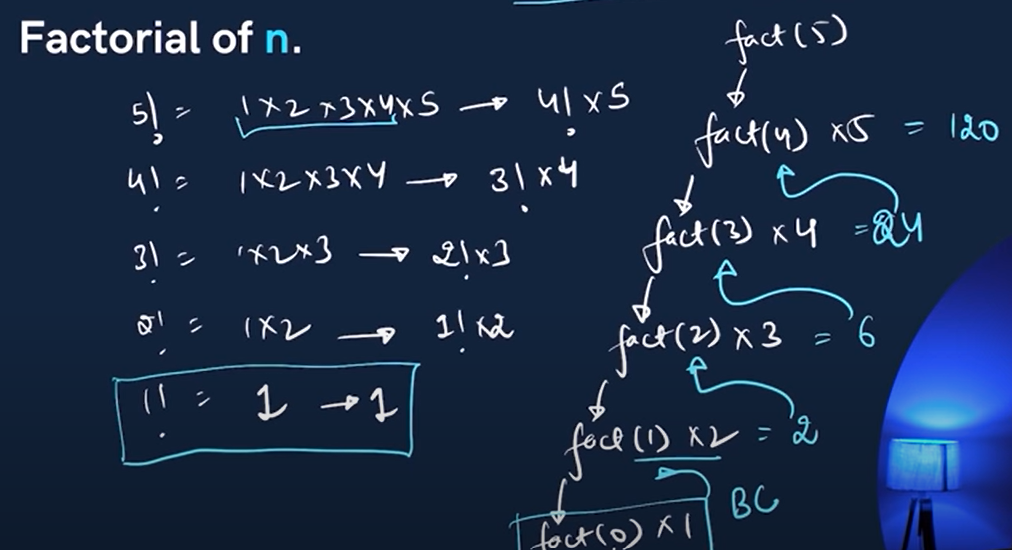 Factorial of n.
5! = 1×2×3×4×5 → 4! ×5
4! = 1×2×3×4 → 3! ×4
3! = 1×2×3 → 2! ×3
2! = 1×2 → 1! ×2
1! = 1 → 1
fact(5)
fact(4) ×5 = 120
fact(3) ×4 = 24
fact(2) ×3 = 6
fact(1) ×2 = 2
fact(0) ×1
BC